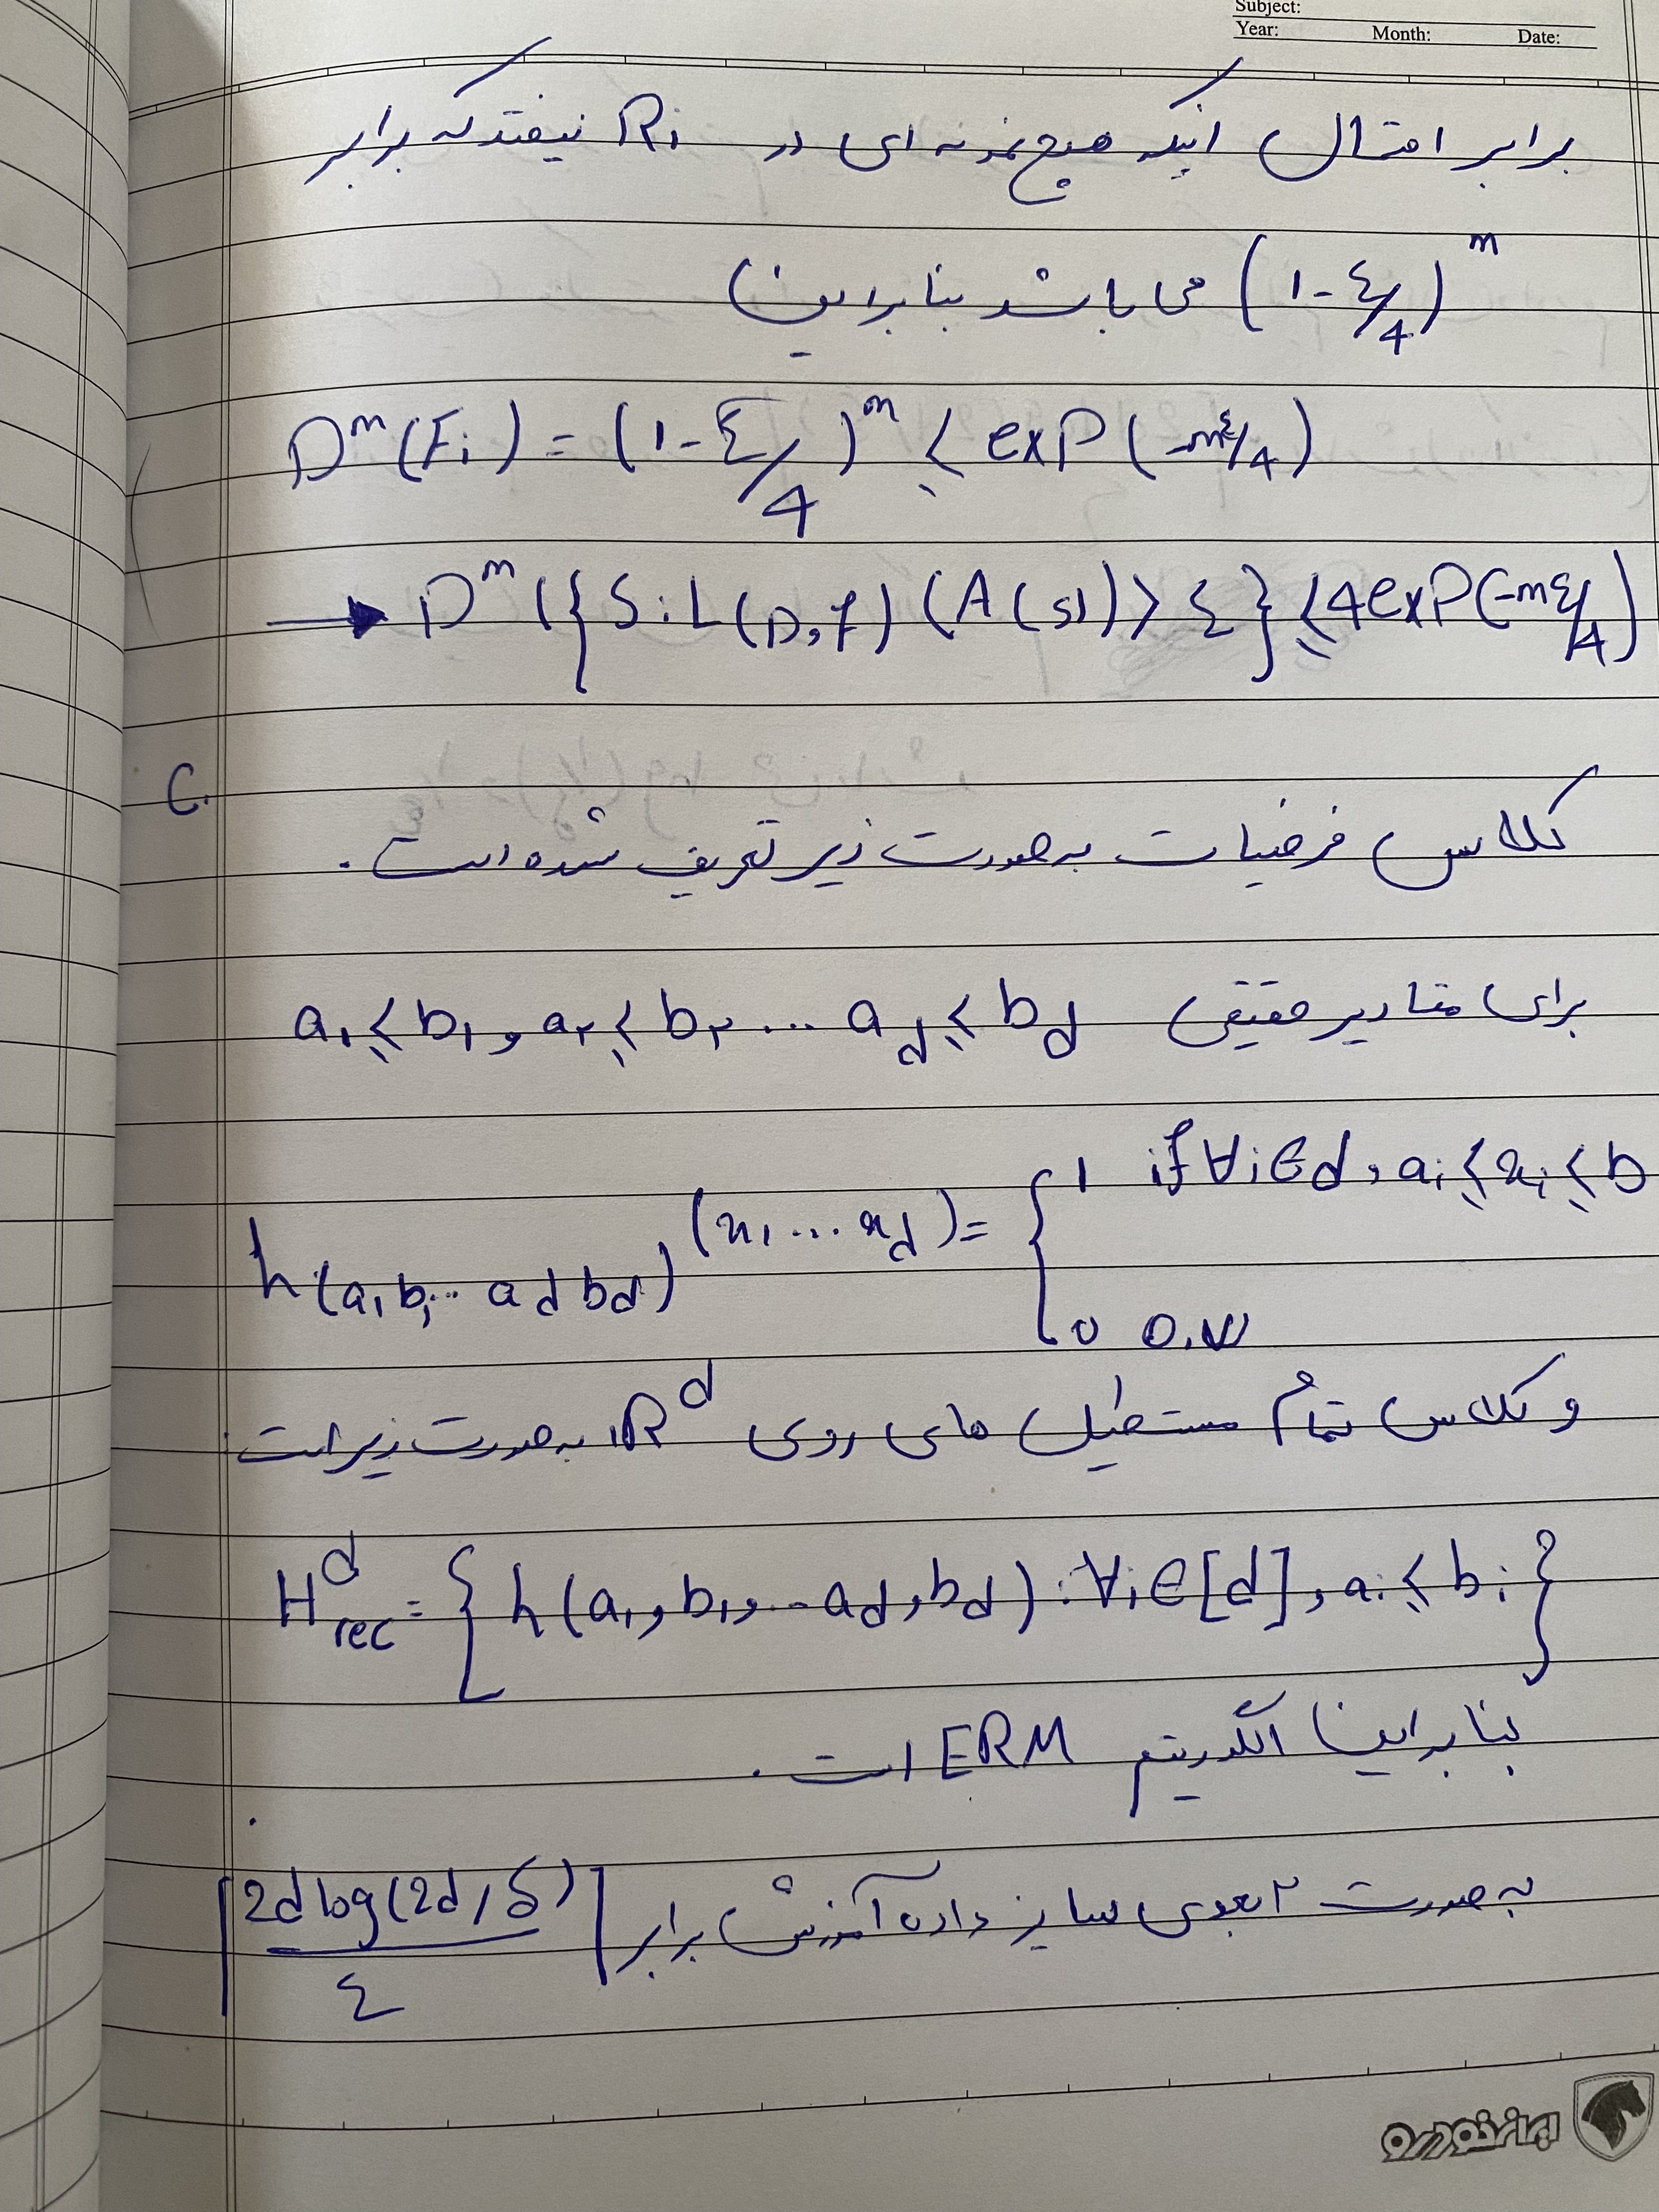 Subject:
Year: Month: Date:
برابر احتمال اینکه هیچ نمونه ای در Ri نیفتد که برابر
(1-ε/4)^m می باشد بنابراین
D^m(Fi) = (1-ε/4)^m ≤ exp(-mε/4)
→ D^m({S: L(D,f)(A(s)) > ε} ≤ 4exp(-mε/4)
C.
کلاس فرضیات به صورت زیر تعریف شده است.
برای مقادیر حقیقی a₁ ≤ b₁, a₂ ≤ b₂ ... a_d ≤ b_d
h(a₁b₁... a_d b_d)(x₁ ... x_d) = { 1 if ∀i∈d, ai ≤ xi ≤ b
0 o.w
و کلاس تمام مستطیل های روی IR^d به صورت زیر است:
H^d rec = { h(a₁, b₁, .. a_d, b_d) : ∀i∈[d], ai ≤ bi }
بنابراین الگوریتم ERM است.
به صورت ۲ بعدی سایز داده آموزش برابر ⌈2d log(2d/δ)/ε⌉
ایران خودرو